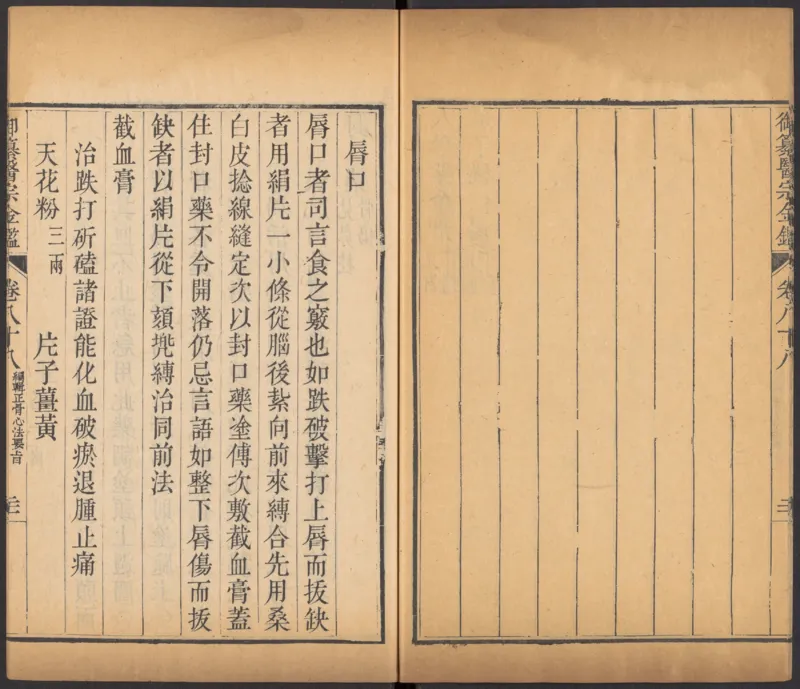 御纂醫宗金鑑
卷八十八
三
脣口
脣口者司言食之竅也如跌破擊打上脣而拔缺
者用絹片一小條從腦後紮向前來縛合先用桑
白皮捻線縫定次以封口藥塗傅次敷截血膏蓋
住封口藥不令開落仍忌言語如整下脣傷而拔
缺者以絹片從下頦兜縛治同前法
截血膏
治跌打斫磕諸證能化血破瘀退腫止痛
天花粉三兩 片子薑黃
御纂醫宗金鑑 卷八十八 編輯正骨心法要旨